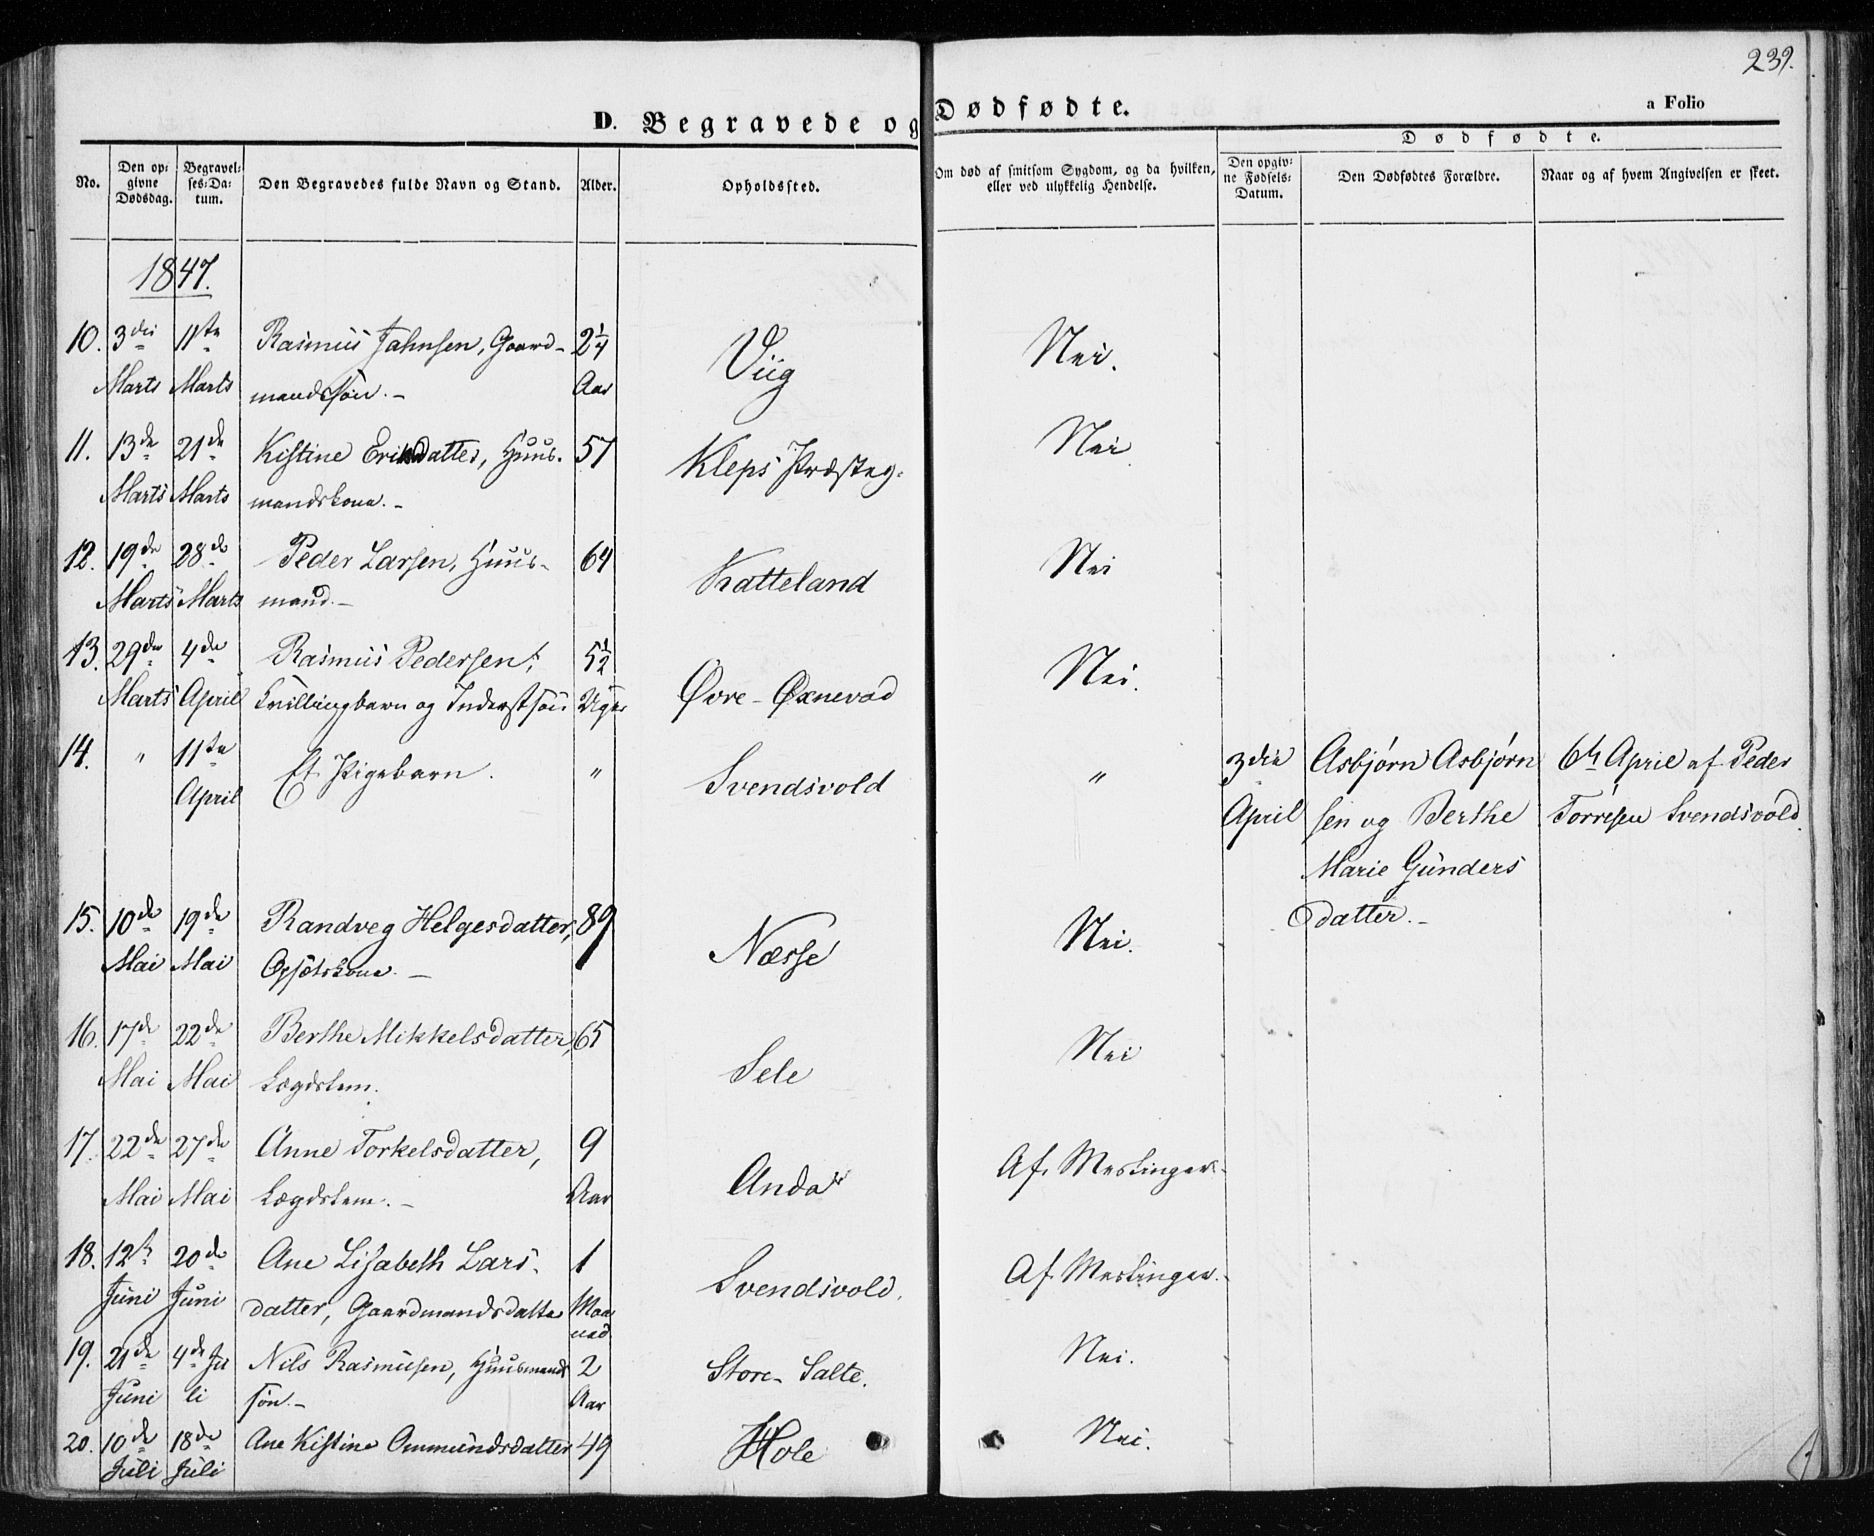 239.
D. Begravede og Dødfødte.
a Folio
No.
Den opgivne Dødsdag.
Begravelses-Datum.
Den Begravedes fulde Navn og Stand.
Alder.
Opholdssted.
Om død af smitsom Sygdom, og da hvilken, eller ved ulykkelig Hendelse.
Dødfødte.
Den opgivne Fødsels-Datum.
Den Dødfødtes Forældre.
Naar og af hvem Angivelsen er skeet.
1847.
10. 3die 11te Rasmus Jahnsen, Gaard- 2¼ Viig Nei.
Marts Marts mandssøn.- Aar
11. 13de 21de Kistine Eriksdatter, Huus- 57 Kleps Præsteg. Nei
Marts Marts mandskone.-
12. 19de 28de Peder Larsen, Huus- 64 Katteland Nei
Marts Marts mand.-
13. 29de 4de Rasmus Pedersen, 5½ Øvre-Øxnevad Nei.
Marts April Tvillingbarn og Inderstsøn Uger
14. " 11te Et Pigebarn. " Svendsvold " 3die Asbjørn Asbjørn 6te April af Peder
April April sen og Berthe Torresen Svendsvold.
Marie Gunders
datter.-
15. 10de 19de Randveg Helgesdatter, 89 Næsse Nei.
Mai Mai Opsætskone.-
16. 17de 22de Berthe Mikkelsdatter, 65 Sele Nei
Mai Mai Lægdslem.
17. 22de 27de Anne Torkelsdatter, 9 Anda Af Meslinger.
Mai Mai Lægdslem.- Aar
18. 12te 20de Ane Lisabeth Lars- 1 Svendsvold. Af Meslinger.
Juni Juni datter, Gaardmandsdatter Maa
ned
19. 21de 4de Ju Nils Rasmusen, Huusmands 2 Store-Salte. Nei.
Juni li søn.- Aar
20. 10de 18de Ane Kistine Ommundsdatter 49 Hole Nei.
Juli Juli